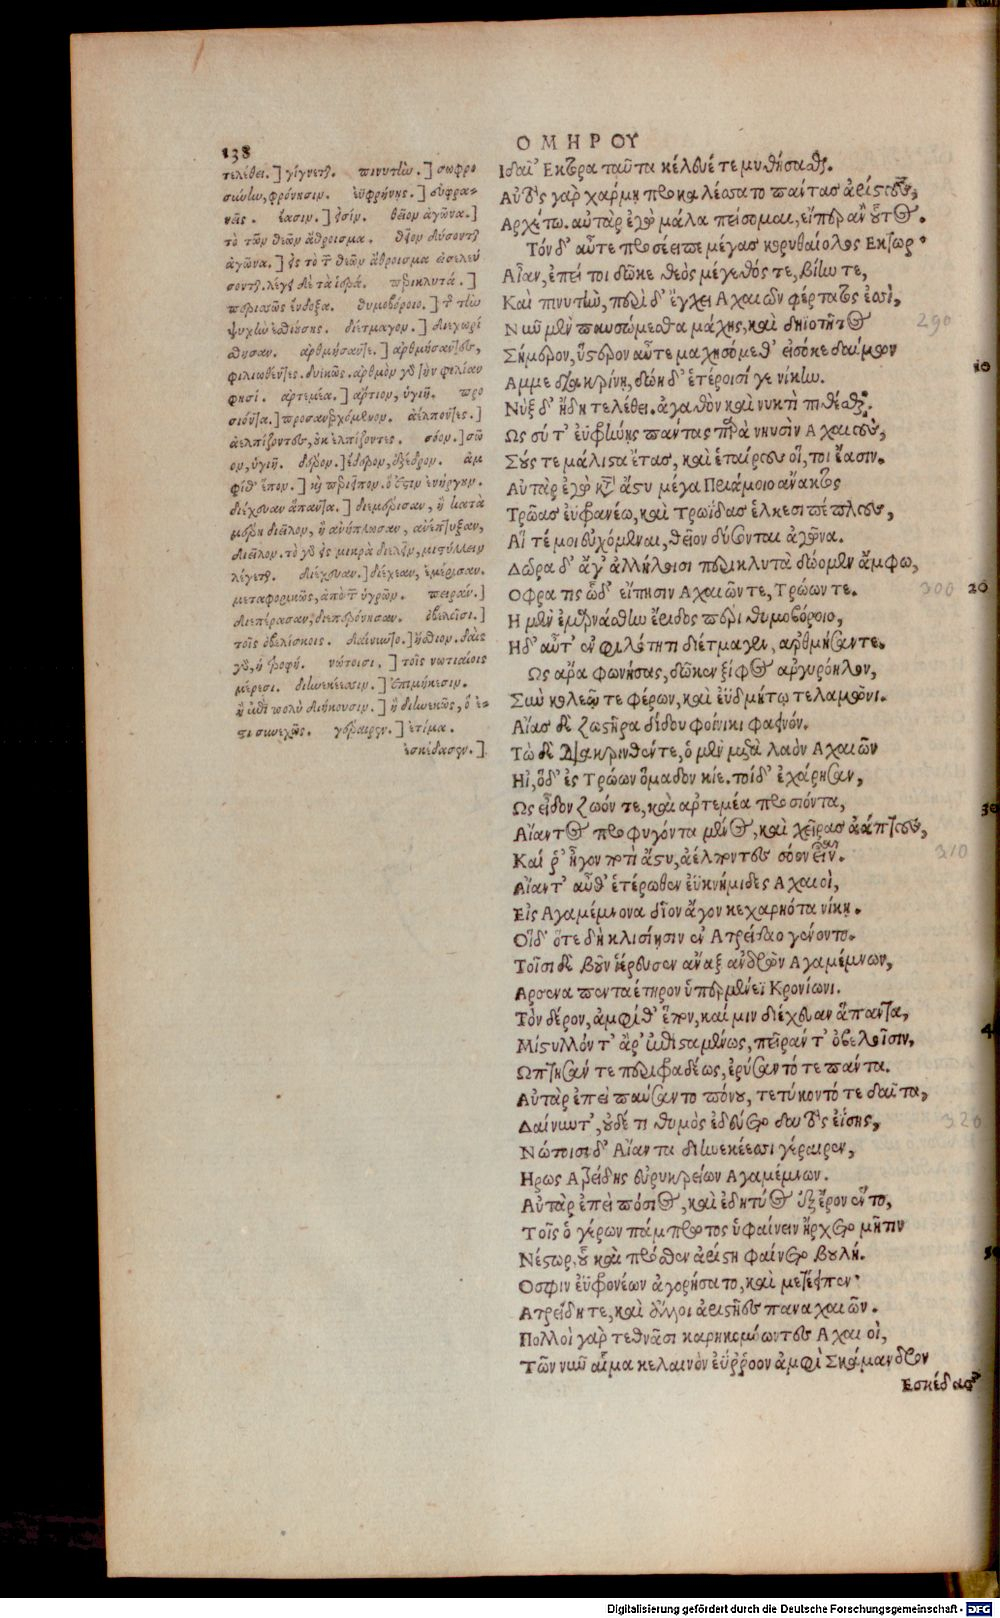 138
ΟΜΗΡΟΥ
τελέθει.] γίγνεται. πινυτὴν.] σωφρο
σύνην, φρόνησιν. εὐφρήνῃς.] εὐφρα-
νῇς. ἔασιν.] εἰσίν. θεῖον ἀγῶνα.]
τὸ τῶν θεῶν ἄθροισμα. θεῖον δύσονται
ἀγῶνα.] εἰς τὸ τῶν θεῶν ἄθροισμα εἰσελεύ
σονται. λέγει δὲ τὰ ἱερά. περικλυτά.]
περισσῶς ἔνδοξα. θυμοβόροιο.] τῆς τὴν
ψυχὴν ἐσθιούσης. διέτμαγον.] διεχωρί
σθησαν. ἀρθμήσαντε.] ἀρθμήσαντες,
φιλιωθέντες. δυϊκῶς. ἀρθμὸν γὰρ τὴν φιλίαν
φησί. ἀρτεμέα.] ἄρτιον, ὑγιῆ. προ
σιόντα.] προσανερχόμενον. ἀελπτοῦντες.]
ἀελπίζοντες, οὐκ ἐλπίζοντες. σόον.] σῶ
ον, ὑγιῆ. δέρον.] ἔδερον, ἐξέδερον. ἀμ
φίθ' ἕπον.] καὶ περιεῖπον. ὅ ἐστιν ἐνήργουν.
διέχευαν ἅπαντα.] διεμέρισαν, ἢ κατὰ
μέρη διεῖλον, ἢ ἀνήπλωσαν, ἀνέπτυξαν,
διεῖλον. τὸ γὰρ εἰς μικρὰ διελεῖν, μιστύλλειν
λέγεται. διέχευαν.] διέχεαν, ἐμέρισαν.
μεταφορικῶς, ἀπὸ τῶν ὑγρῶν. πειράν.]
διεπέρασαν, διεπερόνησαν. ὀβελοῖσι.]
τοῖς ὀβελίσκοις. δαίνυντο.] ἤσθιον. δαὶς
γὰρ, ἡ τροφή. νώτοισι.] τοῖς νωτιαίοις
μέρεσι. διηνεκέεσσιν.] ἐπιμήκεσιν.
ἢ ἐπὶ πολὺ διήκουσιν.] ἢ διηνεκῶς, ὅ ἐ-
στι συνεχῶς. γέραιρεν.] ἐτίμα.
ἐσκέδασεν.]
Ιδαῖ' Εκτορα ταῦτα κέλευέ τε μυθήσαθαι.
Αὐτὸς γὰρ χάρμῃ προκαλέσσατο πάντας ἀρίστους,
Αρχέτω. αὐτὰρ ἐγὼ μάλα πείσομαι, εἴπερ ἂν οὗτος.
Τόνδ' αὖτε προσέειπε μέγας κορυθαίολος Εκτωρ·
Αἶαν, ἐπεί τοι δῶκε θεὸς μέγεθός τε, βίην τε,
Καὶ πινυτὴν, περὶ δ' ἔγχει Αχαιῶν φέρτατος ἐσσὶ,
Νῦν μὲν παυσώμεσθα μάχης, καὶ δηϊοτῆτος 290
Σήμερον, ὕστερον αὖτε μαχησόμεθ' εἰσόκε δαίμων 10
Αμμε διακρίνῃ, δώῃ δ' ἑτέροισί γε νίκην.
Νὺξ δ' ἤδη τελέθει. ἀγαθὸν καὶ νυκτὶ πιθέσθαι.
Ως σύ τ' εὐφρήνῃς πάντας παρὰ νηυσὶν Αχαιοὺς,
Σούς τε μάλιστα ἔτας, καὶ ἑταίρους οἵ, τοι ἔασιν.
Αὐτὰρ ἐγὼ κατὰ ἄστυ μέγα Πριάμοιο ἄνακτος
Τρῶας εὐφρανέω, καὶ Τρωϊάδας ἑλκεσιπέπλους,
Αἵ τέ μοι εὐχόμεναι, θεῖον δύσονται ἀγῶνα.
Δῶρα δ' ἄγ' ἀλλήλοισι περικλυτὰ δώομεν ἄμφω,
Οφρα τις ὧδ' εἴπῃσιν Αχαιῶν τε, Τρώων τε. 300 20
Η μὲν ἐμαρνάσθην ἔριδος περὶ θυμοβόροιο,
Ηδ' αὖτ' ἐν φιλότητι διέτμαγεν, ἀρθμήσαντε.
Ως ἄρα φωνήσας, δῶκεν ξίφος ἀργυρόηλον,
Σὺν κολεῷ τε φέρων, καὶ ἐϋδμήτῳ τελαμῶνι.
Αἴας δὲ ζωστῆρα δίδου φοίνικι φαεινόν.
Τὼ δὲ διακρινθέντε, ὁ μὲν μετὰ λαὸν Αχαιῶν
Ηϊ, ὅδ' ἐς Τρώων ὅμαδον κίε. τοίδ' ἐχάρησαν,
Ως εἶδον ζωόν τε, καὶ ἀρτεμέα προσιόντα, 30
Αἴαντος προφυγόντα μένος, καὶ χεῖρας ἀάπτους,
Καί ῥ' ἦγον προτὶ ἄστυ, ἀέλποντες σόον εἶναι. 310
Αἴαντ' αὖθ' ἑτέρωθεν ἐϋκνήμιδες Αχαιοὶ,
Εἰς Αγαμέμνονα δῖον ἄγον κεχαρηότα νίκῃ.
Οἵδ' ὅτε δὴ κλισίῃσιν ἐν Ατρείδαο γένοντο.
Τοῖσι δὲ βοῦν ἱέρευσεν ἄναξ ἀνδρῶν Αγαμέμνων,
Αρσενα πενταέτηρον ὑπερμενέϊ Κρονίωνι.
Τὸν δέρον, ἀμφίθ' ἕπον, καί μιν διέχευαν ἅπαντα, 4
Μίστυλλόν τ' ἄρ' ἐπισταμένως, πεῖράν τ' ὀβελοῖσιν,
Ωπτησάν τε περιφραδέως, ἐρύσαντό τε πάντα.
Αὐτὰρ ἐπεὶ παύσαντο πόνου, τετύκοντό τε δαῖτα,
Δαίνυντ', οὐδέ τι θυμὸς ἐδεύετο δαιτὸς ἐΐσης, 320
Νώτοισι δ' Αἴαντα διηνεκέεσσι γέραιρεν,
Ηρως Ατρείδης εὐρυκρείων Αγαμέμνων.
Αὐτὰρ ἐπεὶ πόσιος, καὶ ἐδητύος ἐξ ἔρον ἕντο,
Τοῖς ὁ γέρων πάμπρωτος ὑφαίνειν ἤρχετο μῆτιν
Νέστωρ, οὗ καὶ πρόσθεν ἀρίστη φαίνετο βουλή. 5
Οσφιν ἐϋφρονέων ἀγορήσατο, καὶ μετέειπεν·
Ατρείδη τε, καὶ ἄλλοι ἀριστῆες παναχαιῶν.
Πολλοὶ γὰρ τεθνᾶσι καρηκομόωντες Αχαιοὶ,
Τῶν νῦν αἷμα κελαινὸν ἐΰῤῥοον ἀμφὶ Σκάμανδρον
Εσκέδασ'
Digitalisierung gefördert durch die Deutsche Forschungsgemeinschaft - DFG